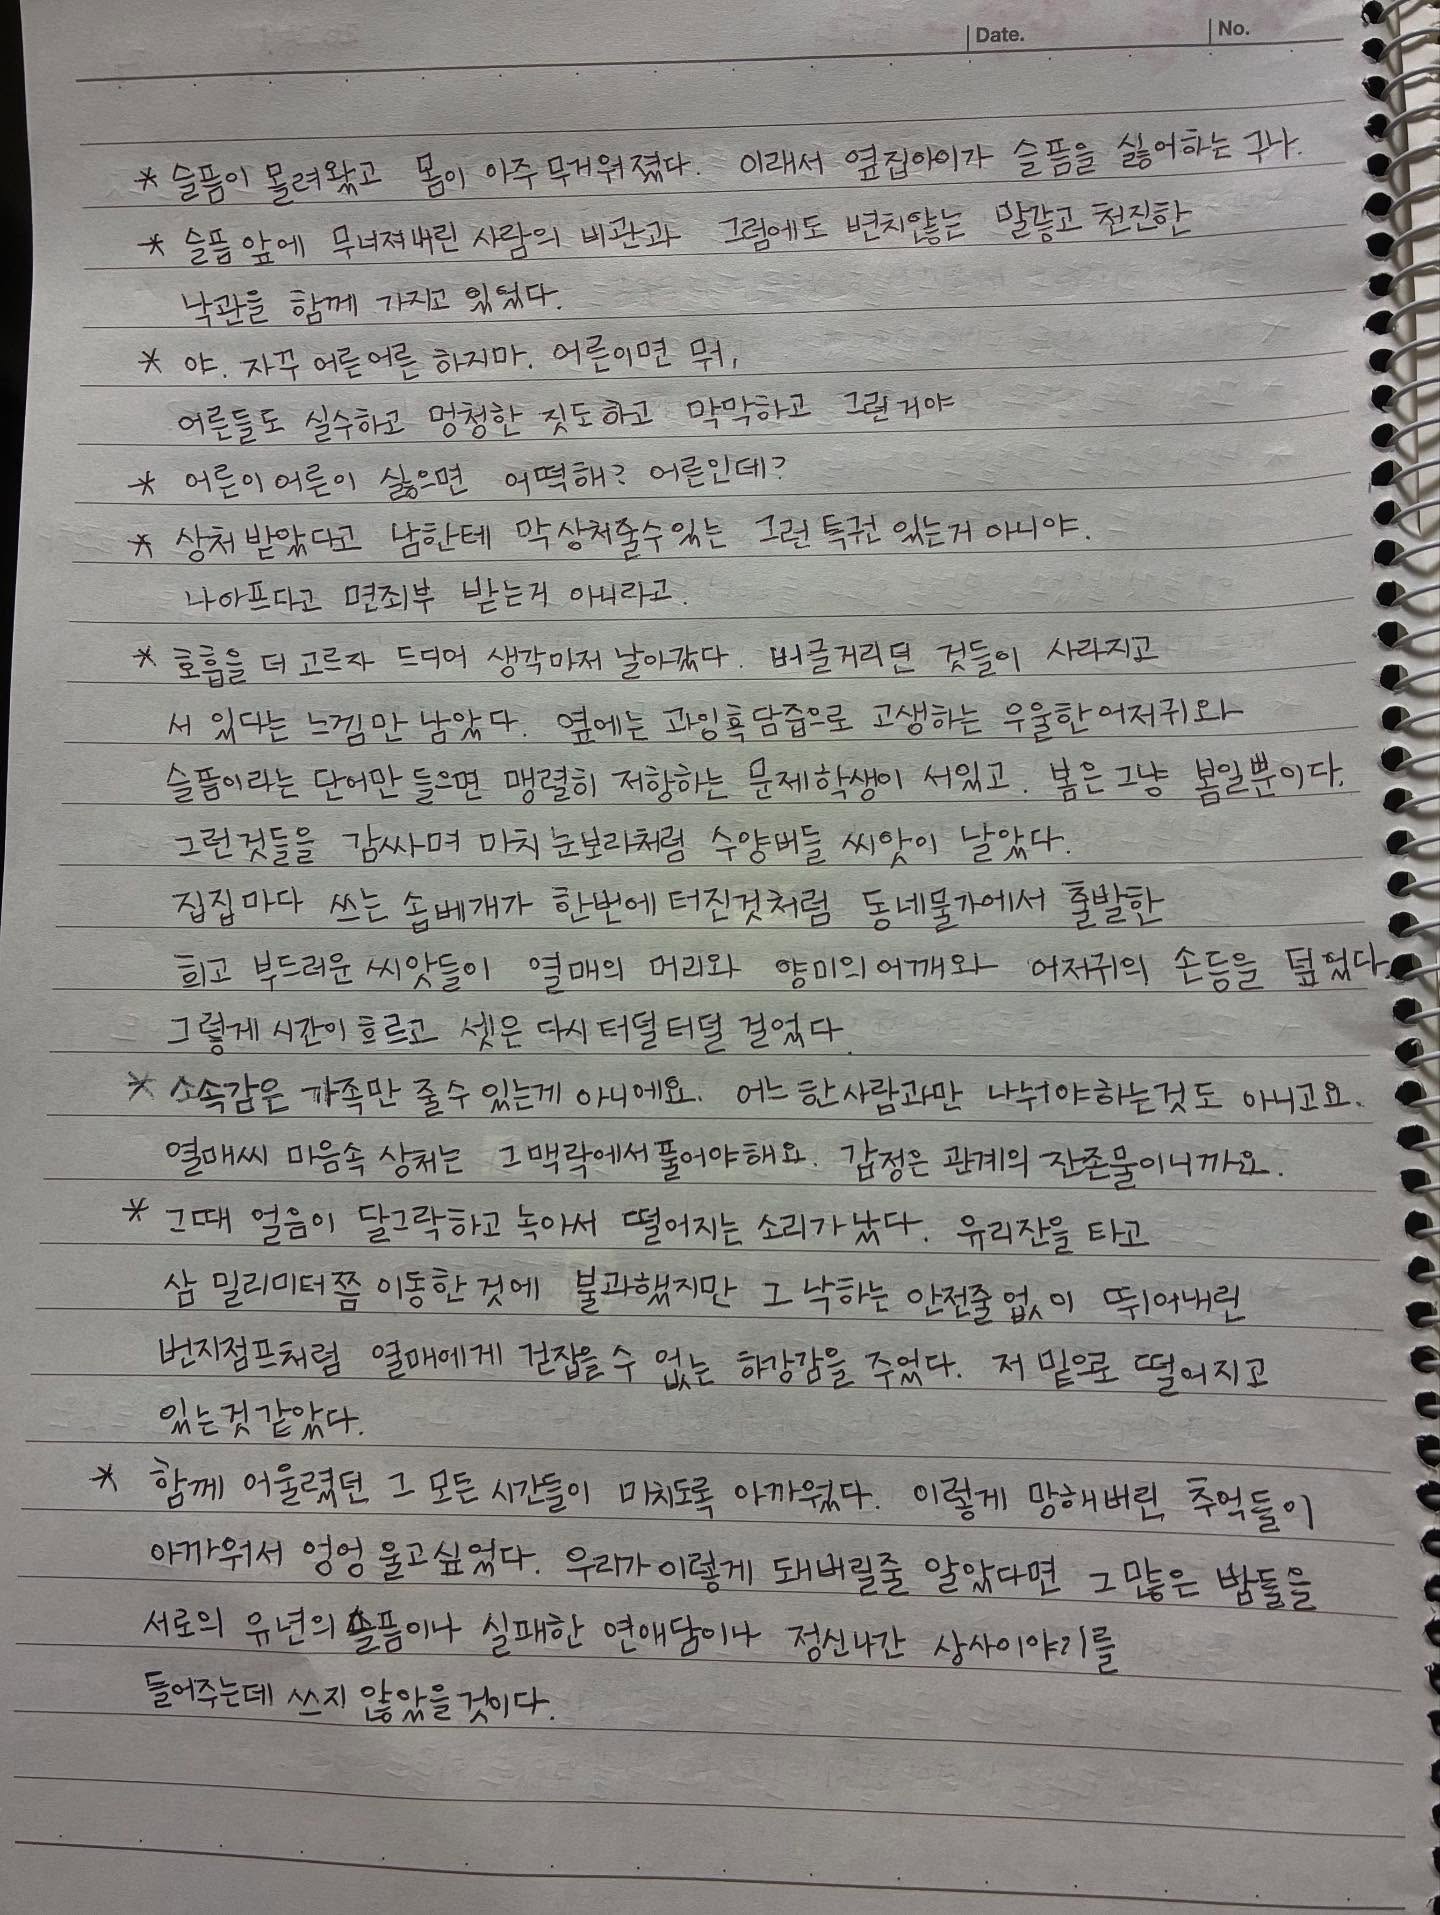 Date. No.
* 슬픔이 몰려왔고 몸이 아주 무거워졌다. 이래서 옆집아이가 슬픔을 싫어하는 구나.
* 슬픔 앞에 무너져내린 사람의 비관과 그럼에도 변치않는 말갛고 천진한
낙관을 함께 가지고 있었다.
* 야. 자꾸 어른어른 하지마. 어른이면 뭐,
어른들도 실수하고 멍청한 짓도하고 막막하고 그런거야
* 어른이 어른이 싫으면 어떡해? 어른인데?
* 상처 받았다고 남한테 막 상처줄수있는 그런 특권 있는거 아니야.
나아프다고 면죄부 받는거 아니라고.
* 호흡을 더 고르자 드디어 생각마저 날아갔다. 버글거리던 것들이 사라지고
서 있다는 느낌만 남았다. 옆에는 과잉흑담즙으로 고생하는 우울한 어저귀와
슬픔이라는 단어만 들으면 맹렬히 저항하는 문제학생이 서있고. 봄은 그냥 봄일뿐이다.
그런것들을 감싸며 마치 눈보라처럼 수양버들 씨앗이 날았다.
집집마다 쓰는 솜베개가 한번에 터진것처럼 동네물가에서 출발한
희고 부드러운 씨앗들이 열매의 머리와 양미의 어깨와 어저귀의 손등을 덮었다.
그렇게 시간이 흐르고 셋은 다시 터덜터덜 걸었다.
* 소속감은 가족만 줄수 있는게 아니에요. 어느 한사람과만 나눠야하는것도 아니고요.
열매씨 마음속 상처는 그 맥락에서 풀어야해요. 감정은 관계의 잔존물이니까요.
* 그때 얼음이 달그락하고 녹아서 떨어지는 소리가 났다. 유리잔을 타고
삼 밀리미터쯤 이동한 것에 불과했지만 그 낙하는 안전줄 없이 뛰어내린
번지점프처럼 열매에게 걷잡을 수 없는 하강감을 주었다. 저 밑으로 떨어지고
있는것 같았다.
* 함께 어울렸던 그 모든 시간들이 미치도록 아까웠다. 이렇게 망해버린 추억들이
아까워서 엉엉 울고싶었다. 우리가 이렇게 돼버릴줄 알았다면 그 많은 밤들을
서로의 유년의 슬픔이나 실패한 연애담이나 정신나간 상사이야기를
들어주는데 쓰지 않았을것이다.